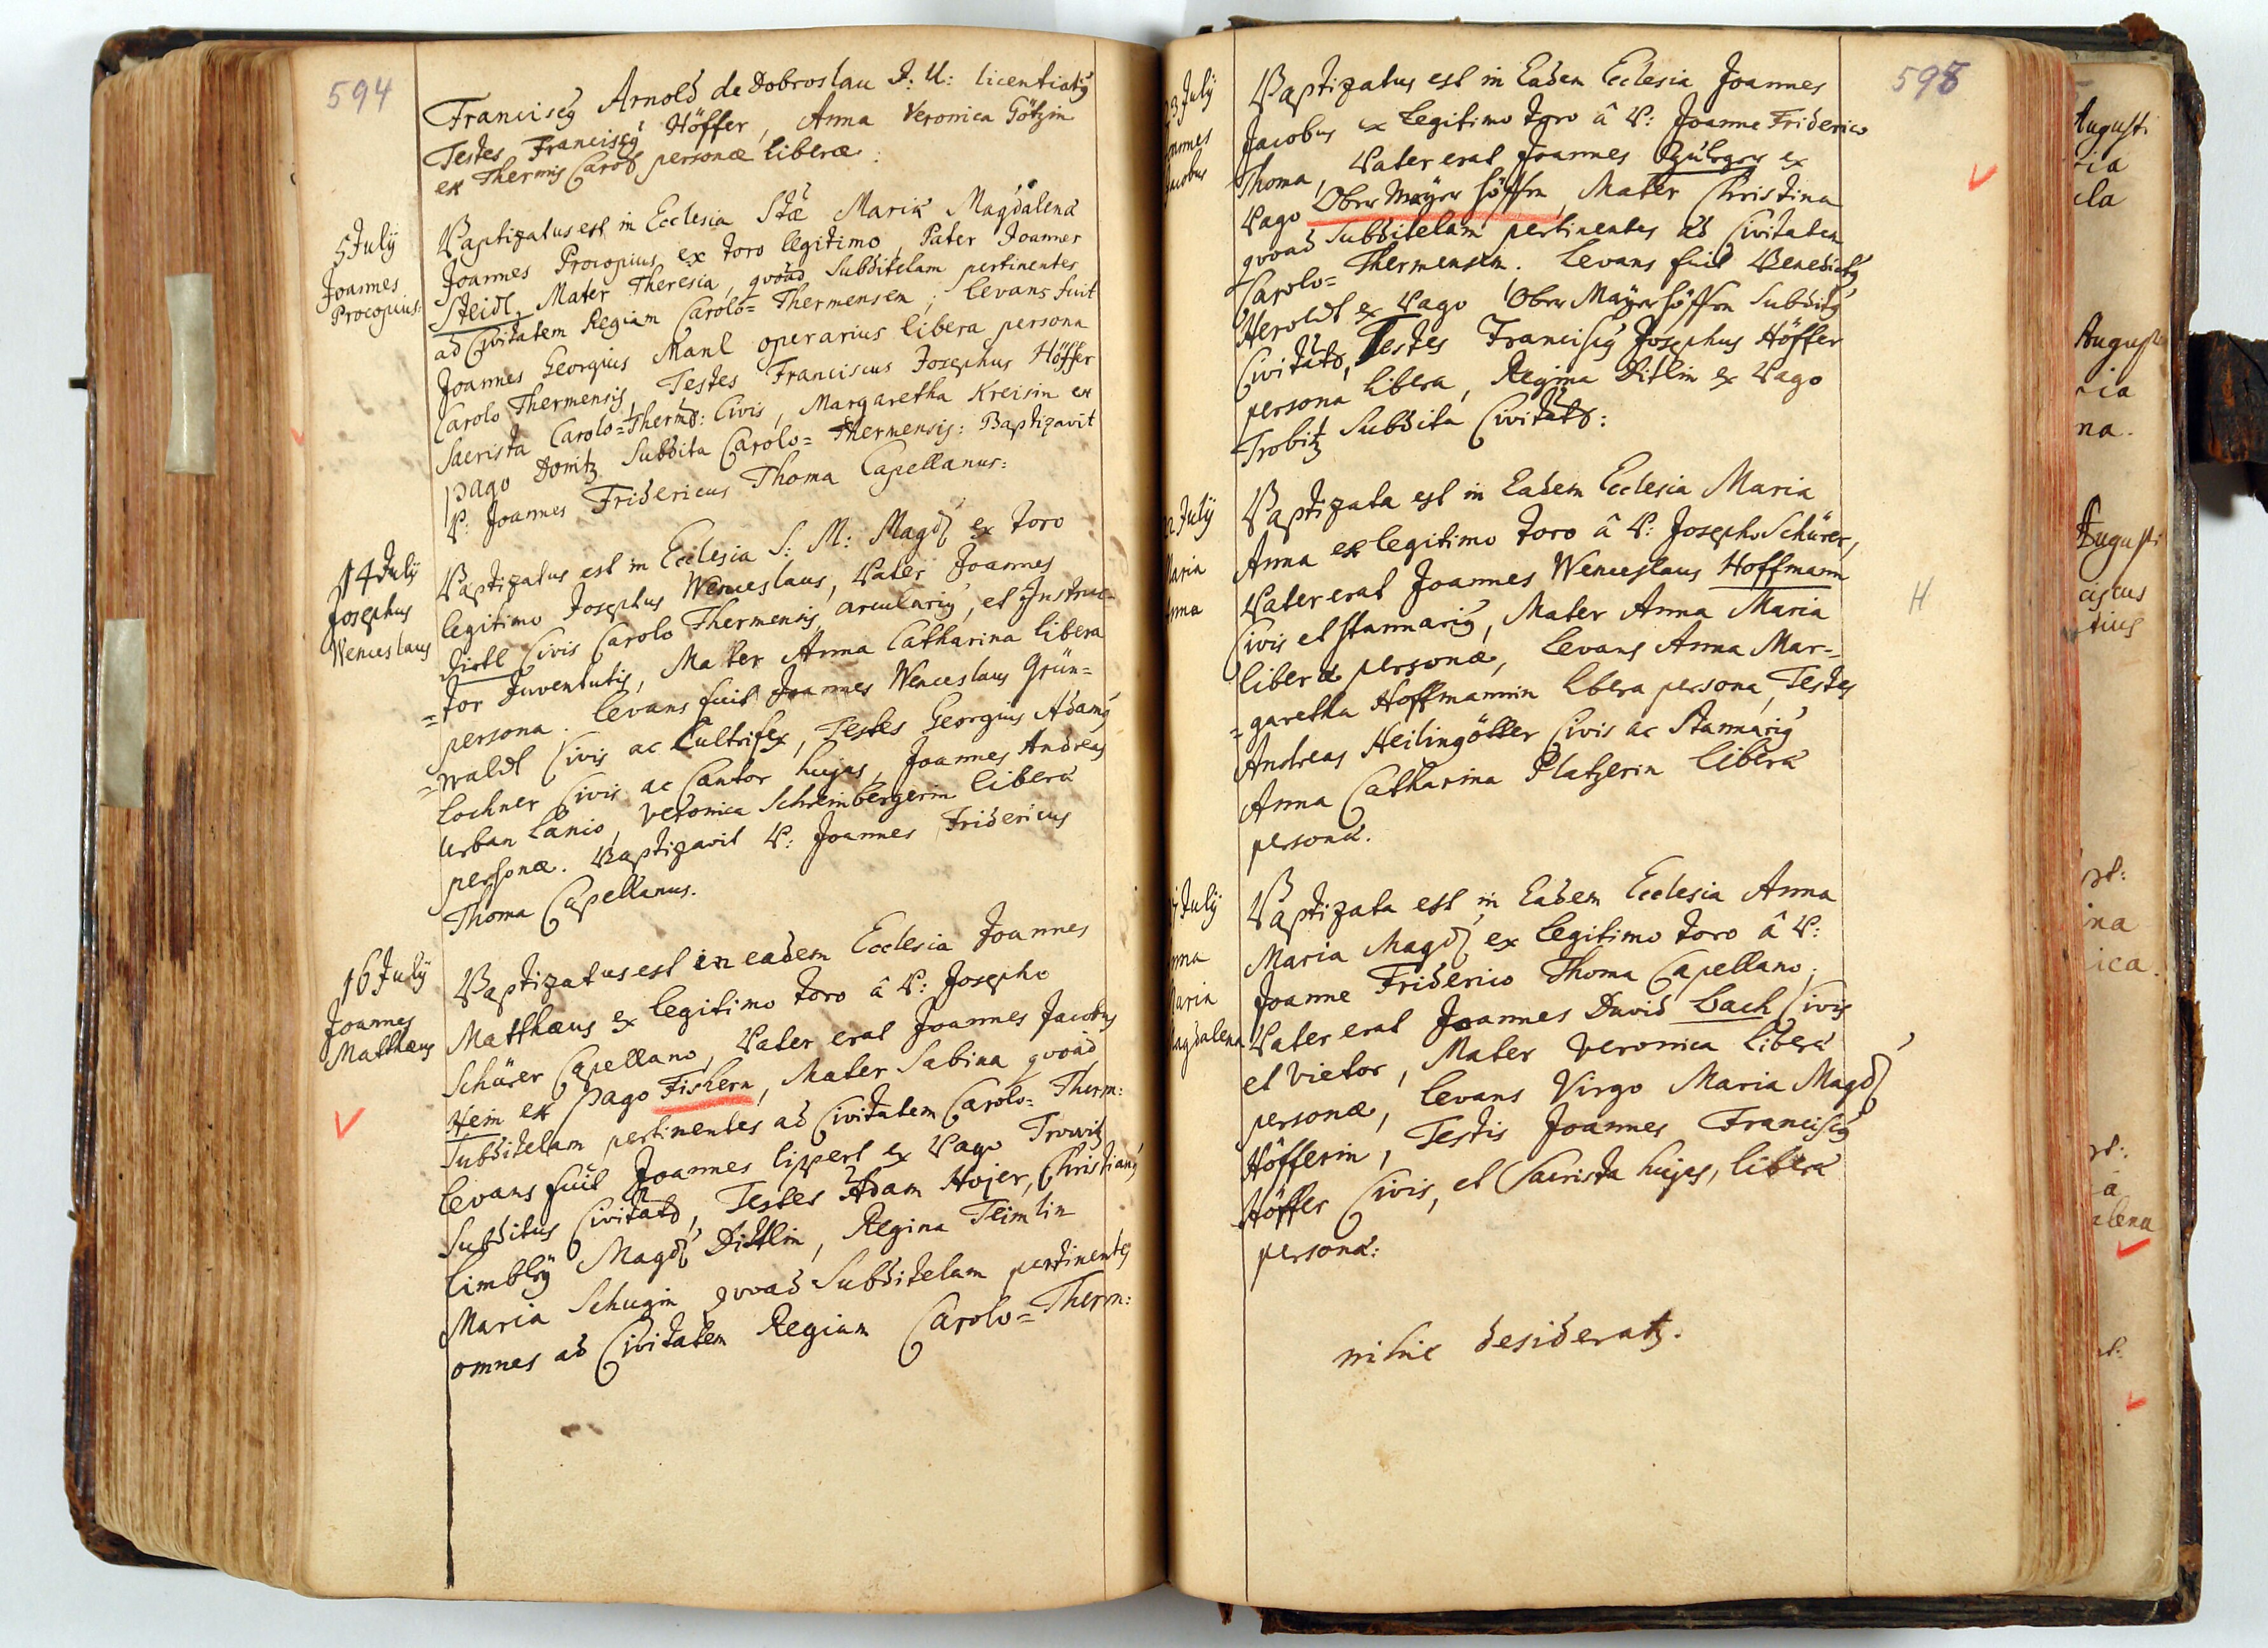 594
Franciscq Arnold de Dobroslau J: U: licentiatq
Testes Franciscq Höffer, Anna Veronica Götzin
ex Thermis Carol personæ liberæ:
5 July
Joannes
Procopius:
Baptizatus est in Ecclesia Stæ Mariæ Magdalenæ
Joannes Procopius, ex toro legitimo, Pater Joannes
Steidl, Mater Theresia, qvoad Subditelam pertinentes
ad Civitatem Regiam Carolo= Thermensem; levans fuit
Joannes Georgius Manl operarius libera persona
Carolo Thermensis, Testes Franciscus Josephus Höffer
Sacrista Carolo=Therms: Civis, Margaretha Kreisin ex
pago Donitz Subdita Carolo= Thermensis: Baptizavit
P: Joannes Fridericus Thoma Capellanus:
14 July
Josephus
Wenceslaus
Baptizatus est in Ecclesia S: M: Magd ex toro
legitimo Josephus Wenceslaus, Pater Joannes
Civis Carolo Thermensis arculariq, et Instruc=
=tor Juventutis, Mater Anna Catharina libera
persona. levans fuit Joannes Wenceslaus Grün=
=waldt Civis ac Cultrifex, Testes Georgius Adamq
Lochner Civis ac Cantor hujas, Joannes Andreas
Urban Lanio, Veronica Schreinbergerin liberæ
personæ. Baptizavit P: Joannes Fridericus
Thoma Capellanus.
16 July
Joannes
Matthæus
Baptizatus est in eadem Ecclesia Joannes
Matthæus ex legitimo toro â P: Josepho
Schürer Capellano, Pater erat Joannes Jacobus
Hein ex pago Fishern, Mater Sabina qvoad
Subditelam pertinentes ad Civitatem Carolo= Therm:
levans fuit Joannes lippert ex Pago
Subditus Civitats, Testes Adam Hojer, Christianq
Magd Dittlin, Regina Teimlin
Maria Schugin qvoad Subditelam pertinentes
omnes ad Civitatem Regiam Carolo= Therm:
598
3 July
annes
Jacobus
Baptizatus est in Eadem Ecclesia Joannes
Jacobus ex legitimo toro â P: Joanne Friderico
Thoma, Pater erat Joannes ex
Pago Ober Mayer höffen, Mater Christina
qvoad Subditelam pertinentes ad Civitatem
Carolo= Thermensem. Levans fuit Benedictq
Heroldt ex Pago Ober Mayerhöffen Subditq
Civitats, Testes Franciscq Josephus Höffer
persona libera, Regina Ditlin ex Pago
Trobitz Subdita Civitats:
22 July
Maria
Anna
Baptizata est in Eadem Ecclesia Maria
Anna ex legitimo toro â P: Josepho Schürer,
Pater erat Joannes Wenceslaus Hoffmann
Civis et stannariq, Mater Anna Maria
liberæ personæ, Levans Anna Mar=
=garetha Hoffmannin libera persona, Testes
Andreas Heilingötter Civis ac Stannariq
Anna Catharina Platzerin liberæ
personæ.
H
July
Anna
Maria
Magdalena
Baptizata est in Eadem Ecclesia Anna
Maria Magd ex legitimo toro â P:
Joanne Friderico Thoma Capellano,
Pater erat Joannes David Bach Civis
et vietor, Mater Veronica liberæ
personæ, Levans Virgo Maria Magd
Höfferin, Testis Joannes Franciscq
Höffer Civis, et Sacrista hujas, liberæ
personæ:
nihil desideratz.
Augusti
ria
ela
Augusti
ria
na.
Augusti
ciscus
tius
ina
ica.
a
alena